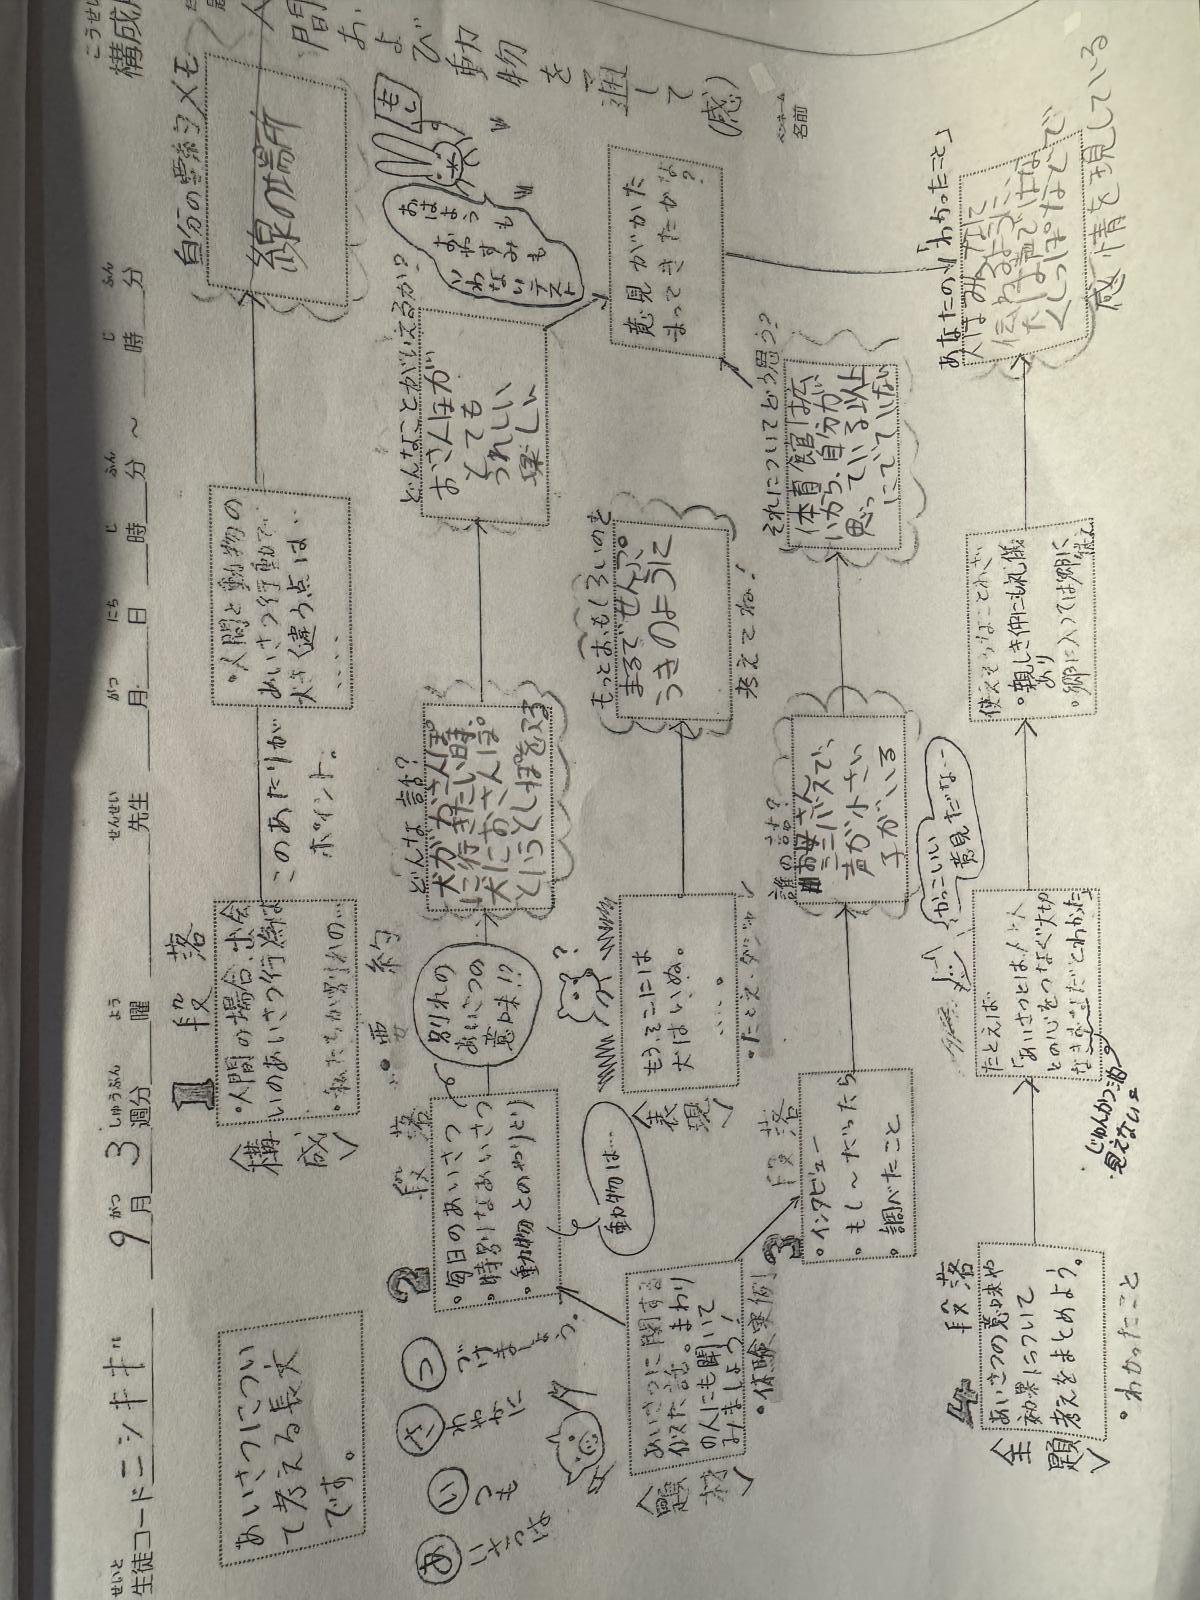 構成
こうせい
せいと
生徒コード ニシキギ
9月3週分
がつ しゅうぶん
曜
よう
先生
せんせい
月 日 時 分 〜 時 分
がつ にち じ ふん じ ふん
名前
ペンネーム
あいさつについ
て考える長文
です。
1
段落
・人間の場合、出会
いのあいさつ行為は
・私たちが別れの…
〈構
成〉
このあたりが
ポイント。
・人間と動物の
あいさつ行動で
大きく違う点は…
・・・・
自分の要約メモ
線の場所
人間および動物を通して
(感)
あ いつも
い つも
さ
つ づけましょう。
2
段落
・毎日のあいさつ
・特別なあいさつ
・動物とのやりとり
別れの
あいさつの
意味!?
要約
どんな話?
犬がおさんぽ
に行きたい時。
犬におさんぽ。
というとしっぽをふる
どんなことがいえるか?
おさんぽが
とても
うれしい
楽しい
おはようも
おやすみも
いわないテスト
もし
動物は…
〈題
材〉
あいさつに関する
似た話。まわり
の人にも聞いて
みましょう!
・体験実例
〈表
現〉
もうそこには
犬はいぬ。
・・・・
・たとえ・ダジャレ
もっとおもしろいのを
まるでせんぷう
きのように
考えてね!
意見がかた
まってきたかな?
3
段落
・インタビュー
・もし〜だったら
・調べたこと
誰の話?
お母さん
ミニバスで、
声が小さい
子がいる
それについてどう思う?
体育館は広
いから、自分が
思っている以上
にでていない
4
段落
〈主
題〉
あいさつの意味や
効果について
考えをまとめよう。
・わかったこと
たとえば
「あいさつとは、人と人
との心をつなぐ大切
なきずなだとわかった」
じゅんかつ油
見えないよ
かっこいい
意見だな…
使えそうなことわざ
・親しき仲にも礼儀
あり
・郷に入っては郷に
従え
あなたの「わかったこと」
人はみんなに
伝わるように、
たは声ではな
くしっぽなどで
感情を現している